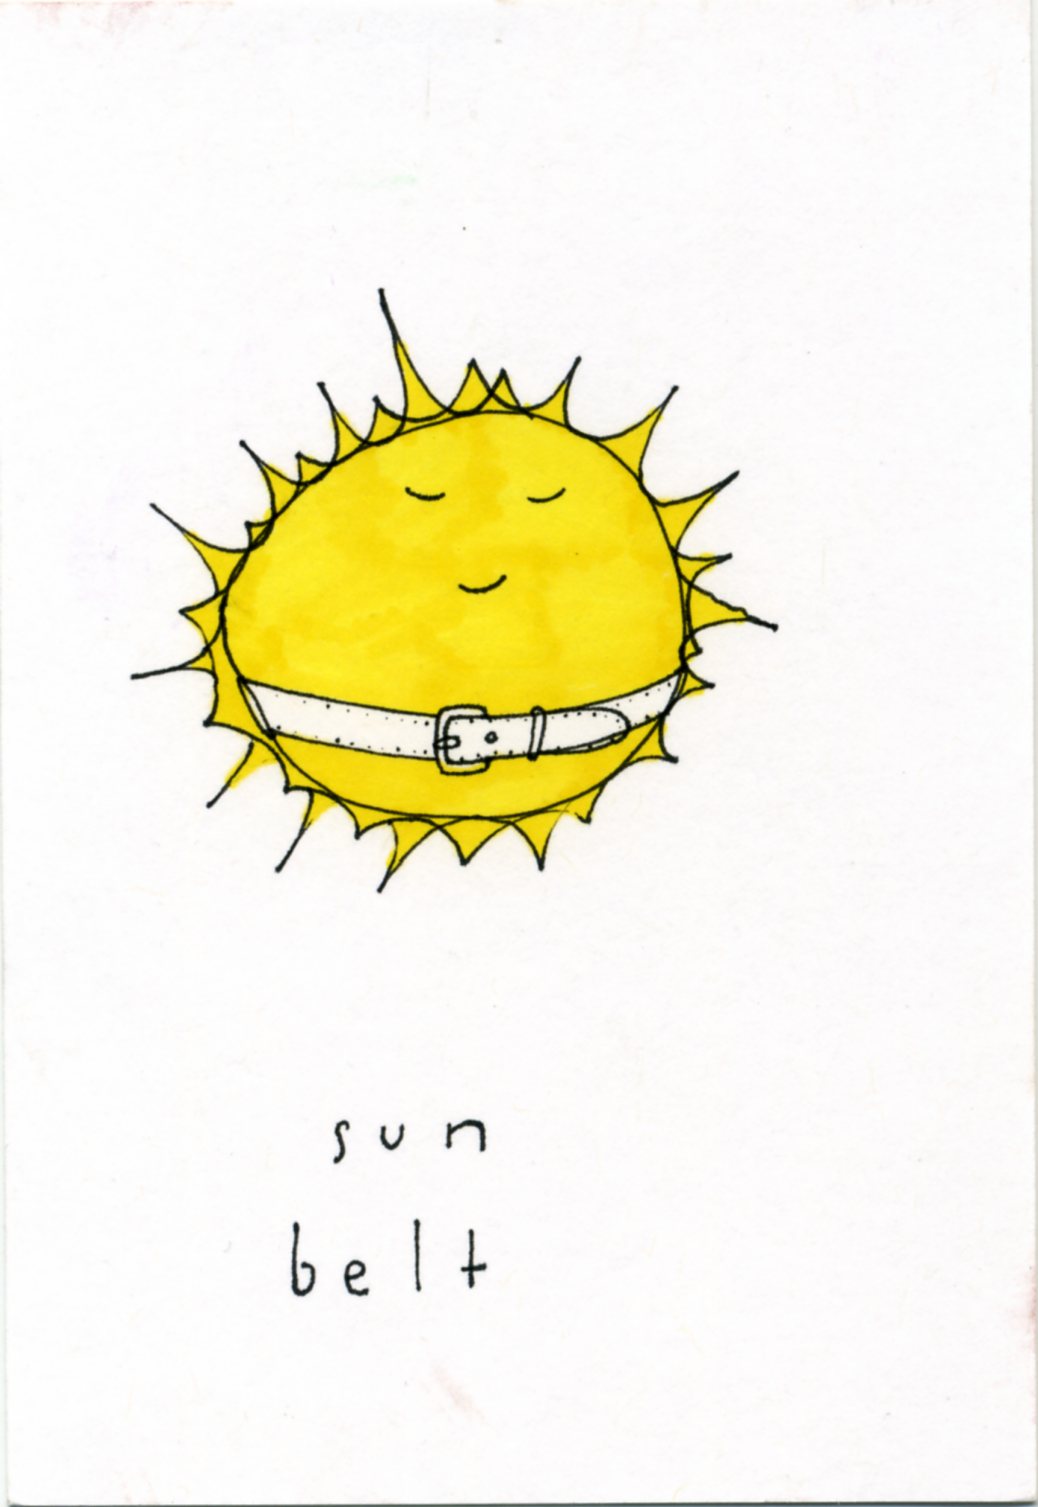 sun
belt